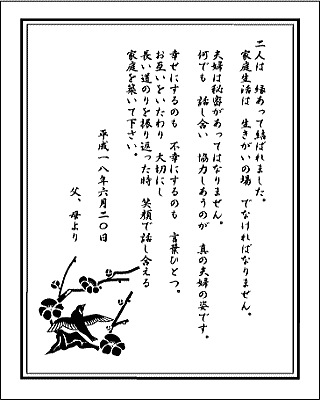 二人は 縁あって結ばれました。
家庭生活は 生きがいの場 でなければなりません。
夫婦は秘密があってはなりません。
何でも 話し合い 協力しあうのが 真の夫婦の姿です。
幸せにするのも 不幸にするのも 言葉ひとつ。
お互いをいたわり 大切にし
長い道のりを振り返った時 笑顔で話し合える
家庭を築いて下さい。
平成一八年六月二〇日
父、母より